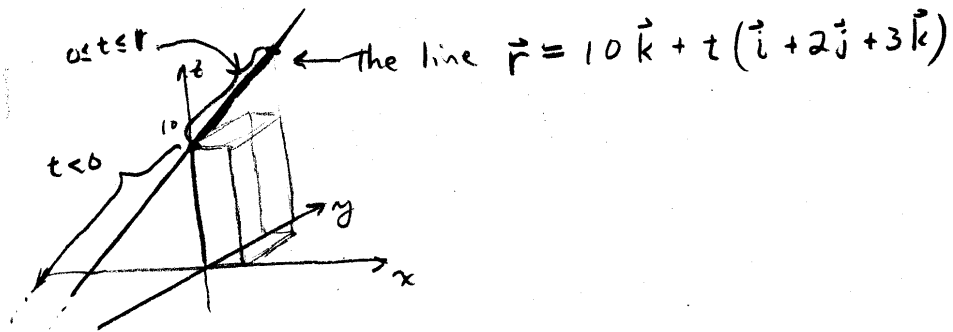 0≤t≤1
z
← the line r⃗ = 10 k⃗ + t (i⃗ + 2j⃗ + 3k⃗)
10
t<0
y
x